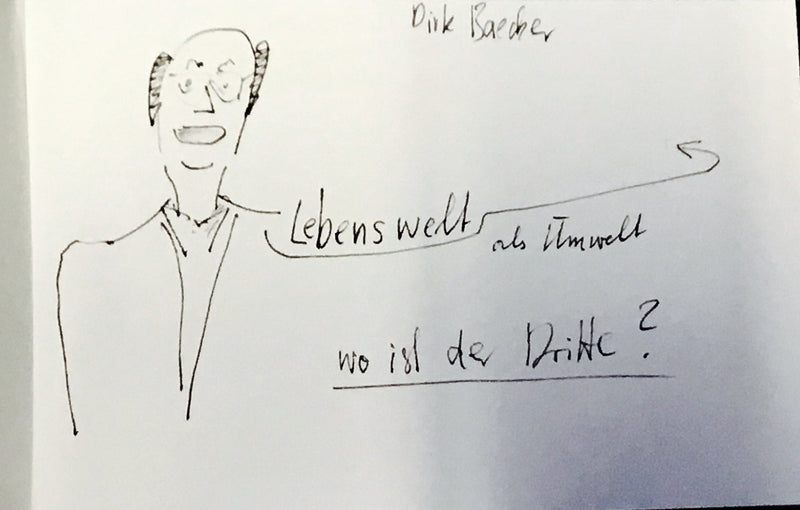 Dirk Baecker
Lebenswelt
als Umwelt
wo ist der Dritte?